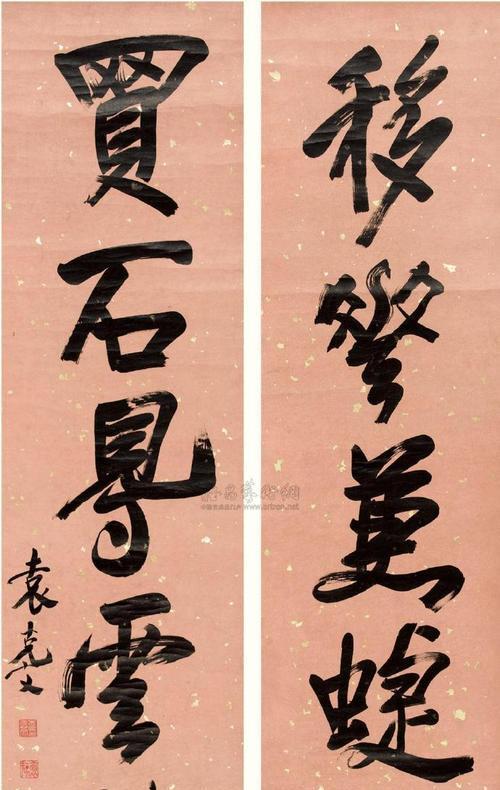 移兼蝶
買石㝵雲
袁克文
雅昌藝術網
www.artron.net